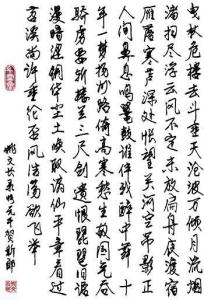 曳杖危楼去斗垂天沧波万顷月流烟
渚扫尽浮云风不定未放扁舟夜渡宿
雁落寒芦深处怅望关河空吊影正
人间鼻息鸣鼍鼓谁伴我醉中舞十
年一梦扬州路倚高寒愁生故国气吞
骄虏要斩楼兰三尺剑遗恨琵琶旧语
漫暗涩铜华尘土唤取谪仙平章看过
苕溪尚许垂纶否风浩荡欲飞举
元干贺新郎